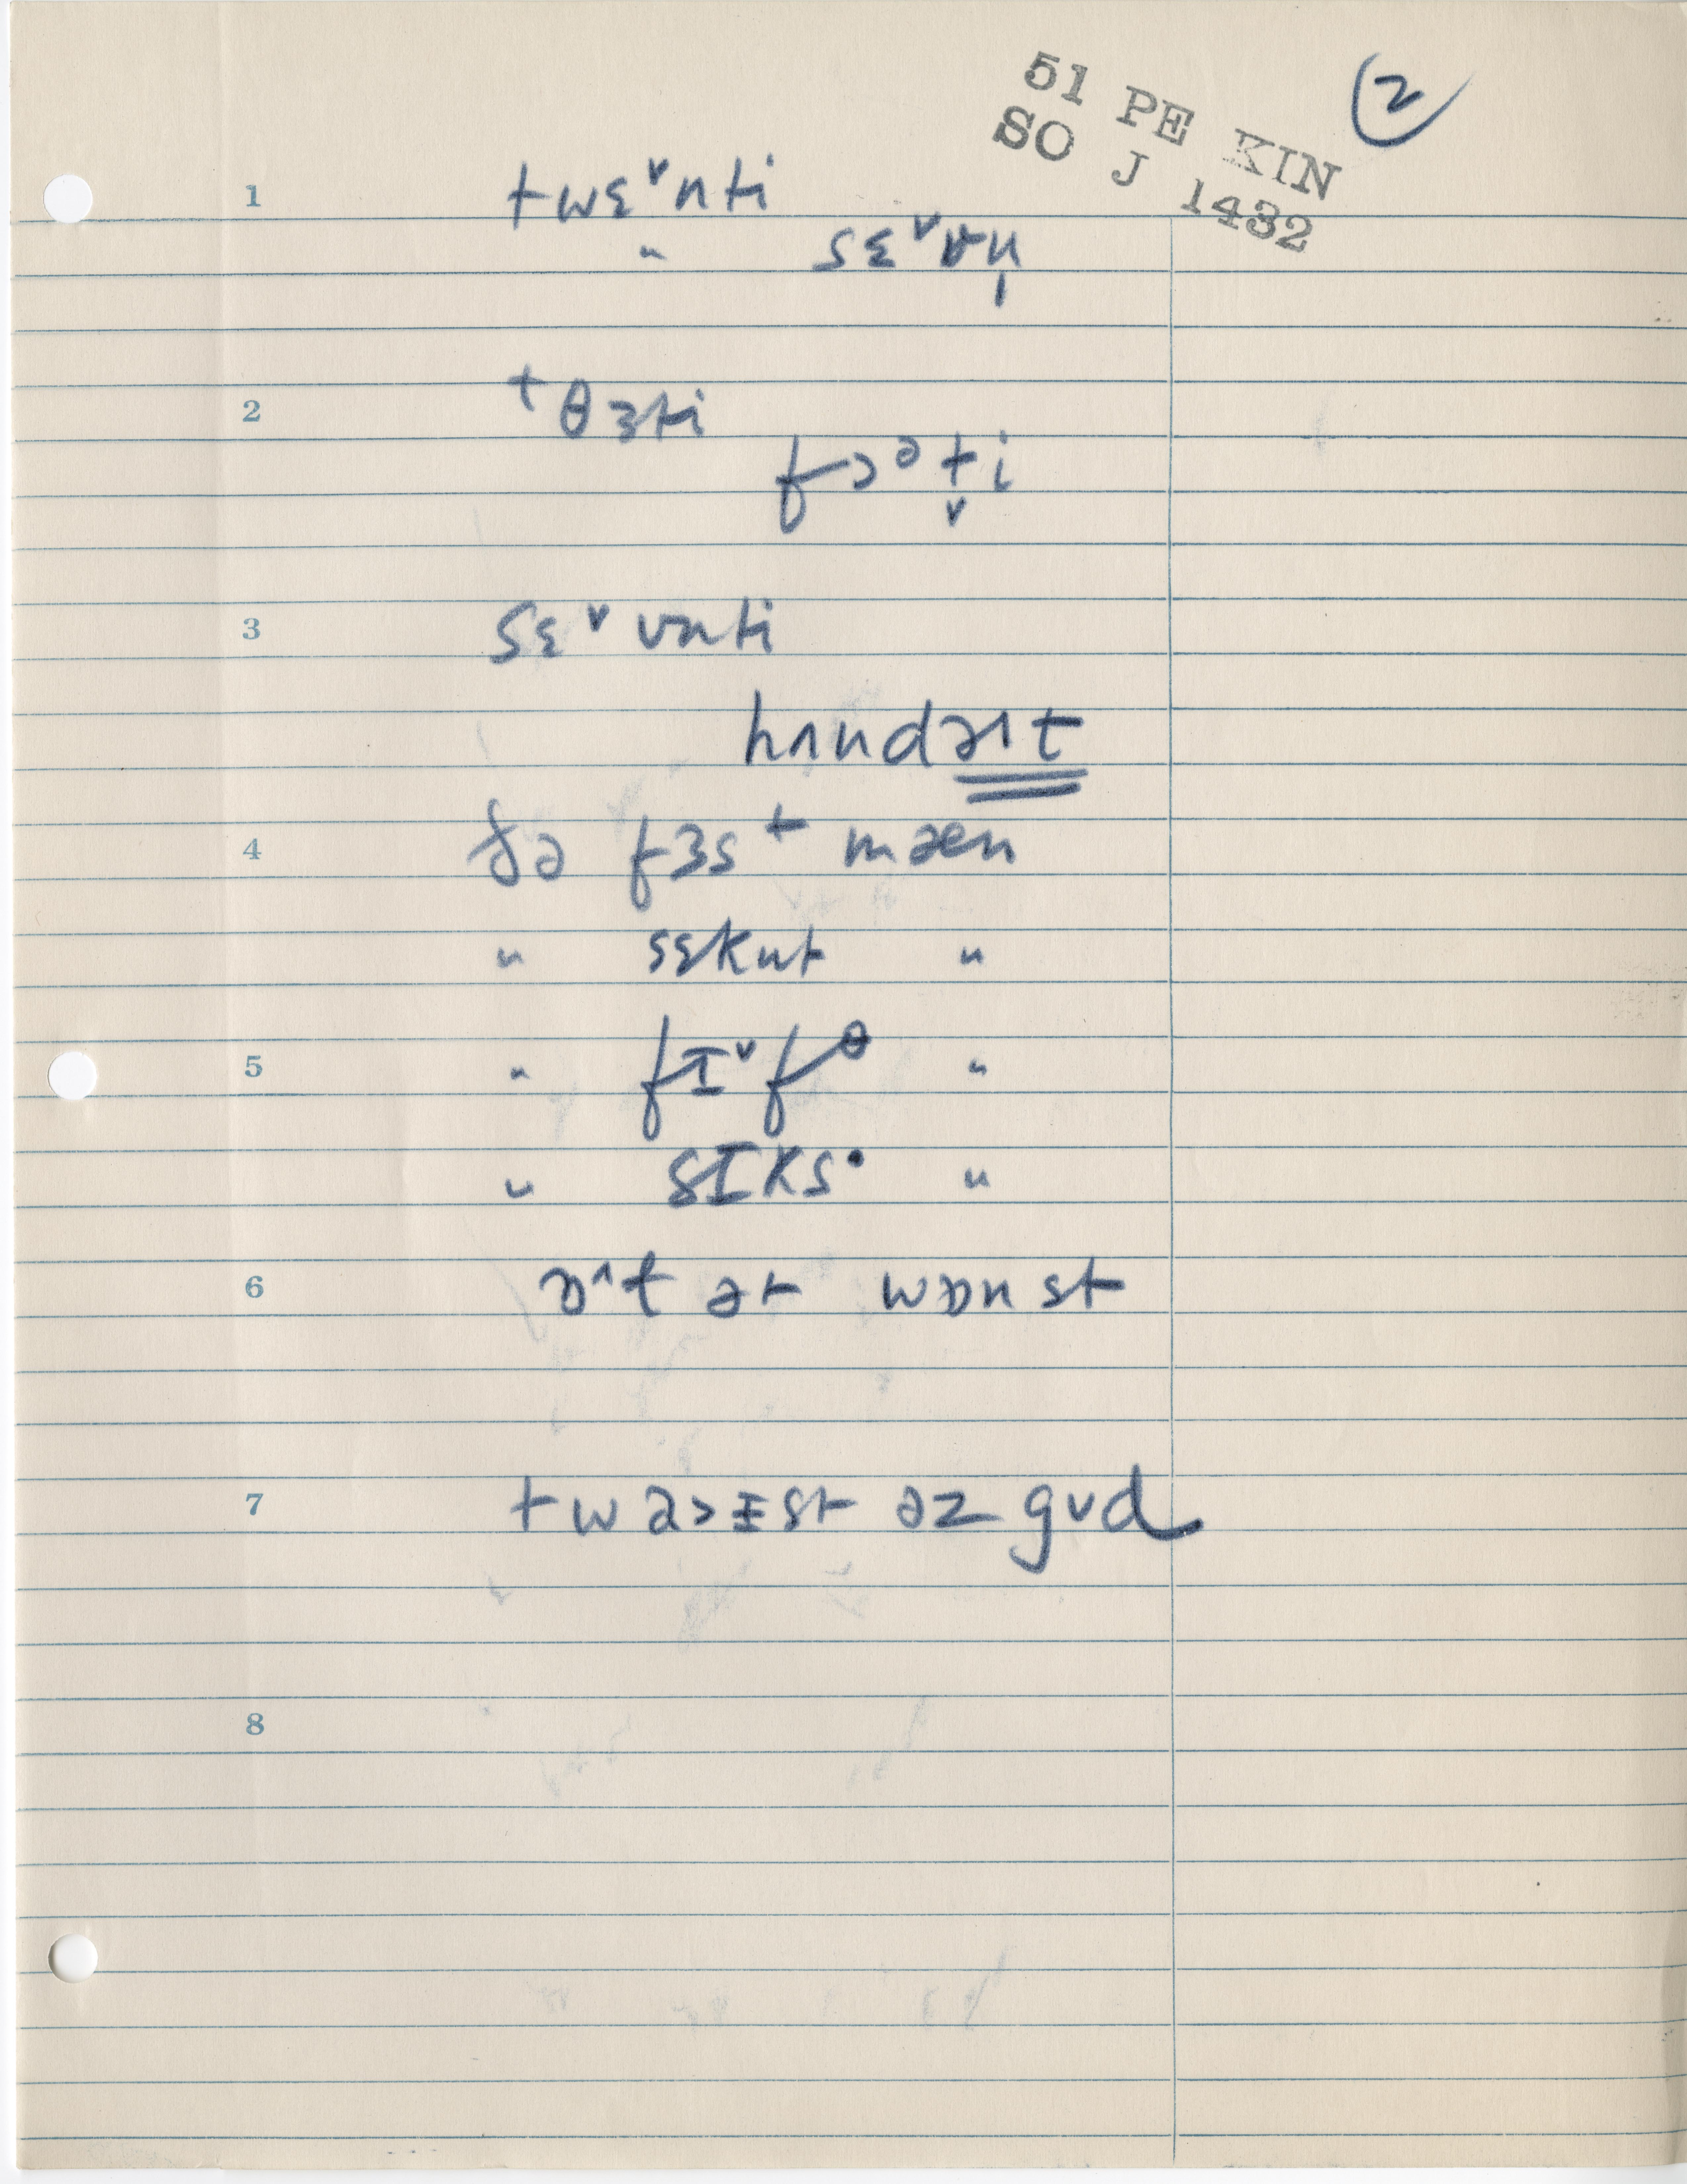 51 PE KIN
SO J 1432
2
1 twɛ˅nti
" sɛ˅vn̩
2 tθɜti
fɔᵊt̬i
3 sɛ˅vnti
hʌndə˄t
4 ðə fɜst mæn
" sɛknt "
5 " fɪ˅fθ "
" sɪks· "
6 ɒ˄t ət wɒnst
7 twɑ˃ɪst əz gʊd
8